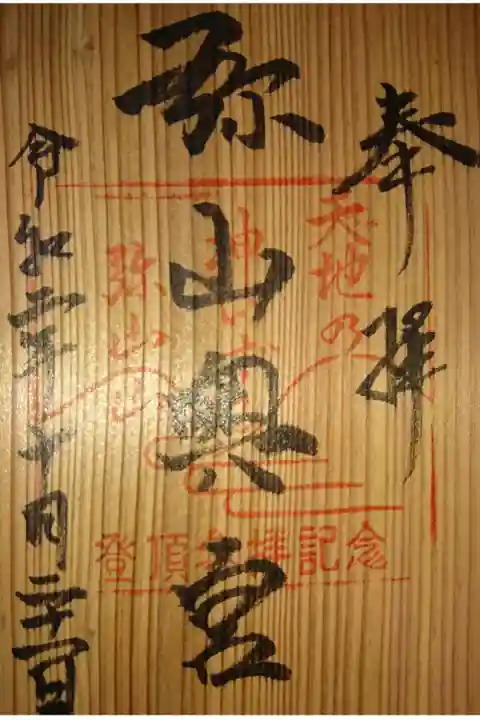 奉拝
天地乃
弥山
弥山奥宮
登頂参拝記念
令和二年十月二十一日